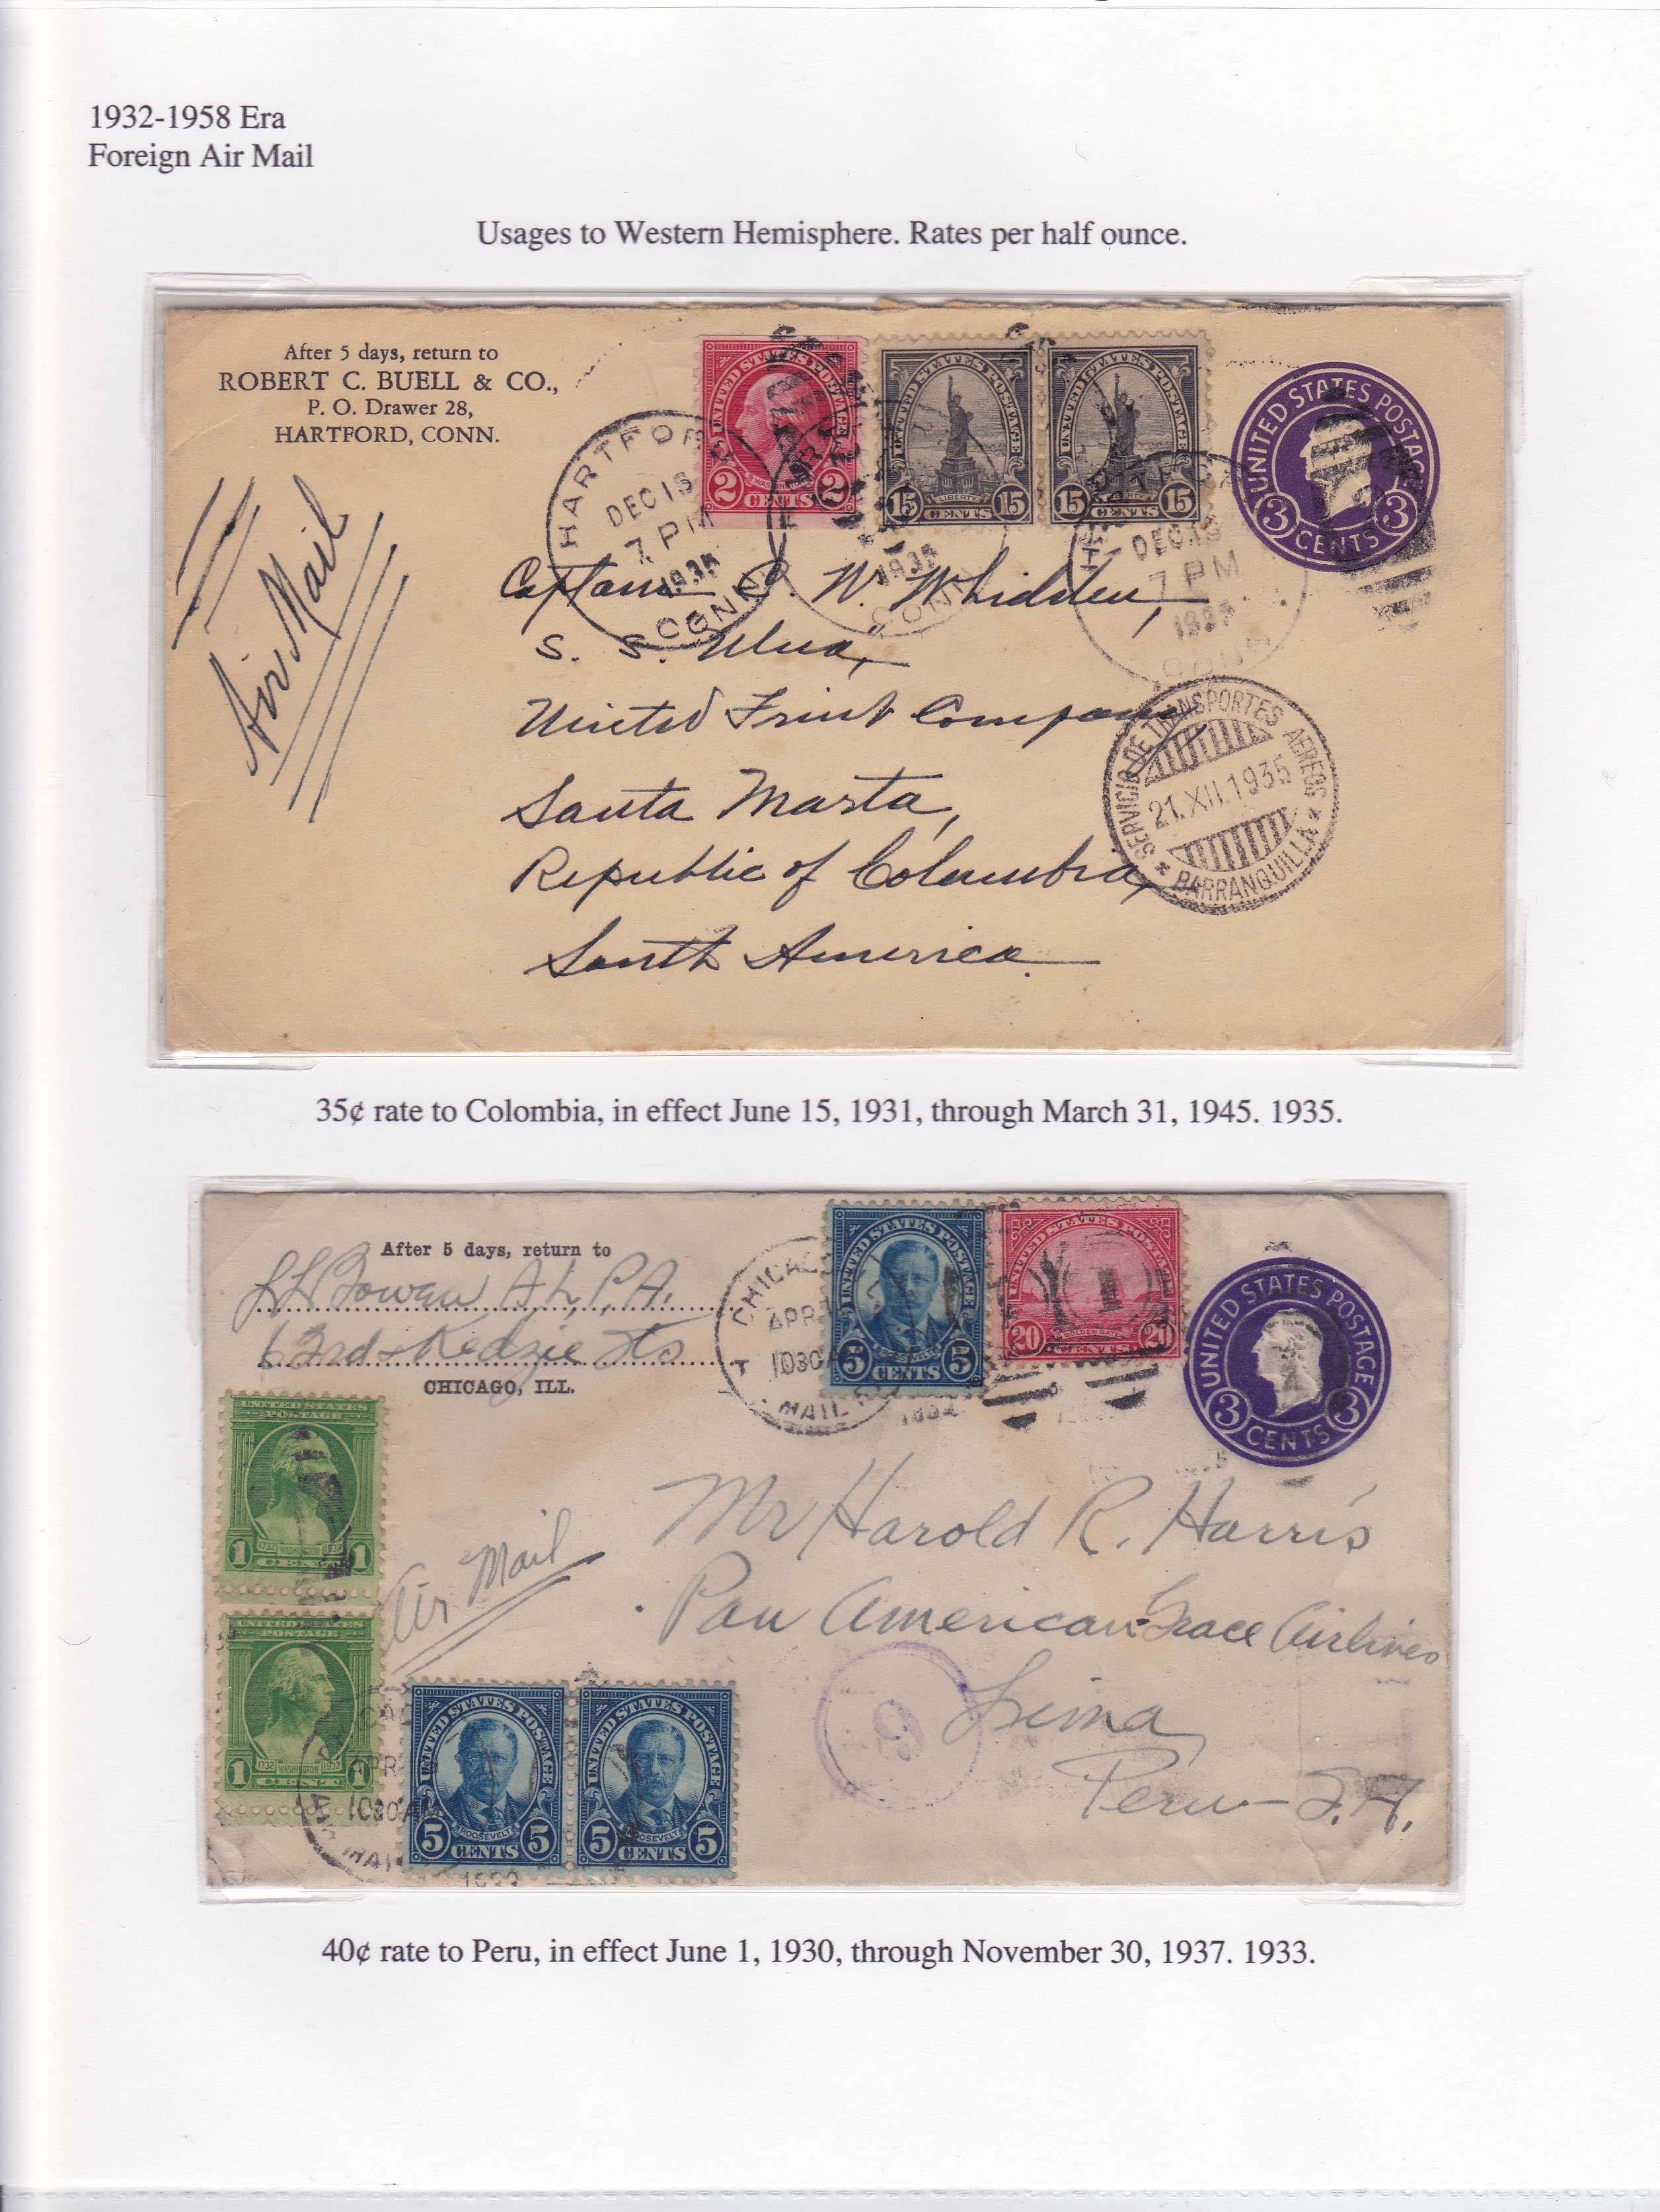 1932-1958 Era
Foreign Air Mail
Usages to Western Hemisphere. Rates per half ounce.
After 5 days, return to
ROBERT C. BUELL & CO.,
P. O. Drawer 28,
HARTFORD, CONN.
Air Mail
HARTFORD
DEC 18
7 PM
CONN
UNITED STATES POSTAGE
WASHINGTON
2 CENTS 2
UNITED STATES POSTAGE
LIBERTY
15 CENTS 15
UNITED STATES POSTAGE
LIBERTY
15 CENTS 15
UNITED STATES POSTAGE
3 CENTS 3
DEC 18
7 PM
CONN
Captain S. W. Whidden,
S. S. "Ulua",
United Fruit Company
Santa Marta,
Republic of Colombia,
South America.
SERVICIO DE TRANSPORTES AEREOS
21.XII.1935
BARRANQUILLA
35¢ rate to Colombia, in effect June 15, 1931, through March 31, 1945. 1935.
After 5 days, return to
L L Bowen A L, P.A.
63rd & Kedzie Sts
CHICAGO, ILL.
CHICAGO
APR
1030 A
MAIL
UNITED STATES POSTAGE
ROOSEVELT
5 CENTS 5
UNITED STATES POSTAGE
GOLDEN GATE
20 CENTS 20
UNITED STATES POSTAGE
3 CENTS 3
UNITED STATES
POSTAGE
1732 WASHINGTON 1932
1 CENT 1
UNITED STATES
POSTAGE
1732 WASHINGTON 1932
1 CENT 1
Air Mail
Mr Harold R. Harris
Pan American-Grace Airlines
Lima
Peru - S.A.
UNITED STATES POSTAGE
ROOSEVELT
5 CENTS 5
UNITED STATES POSTAGE
ROOSEVELT
5 CENTS 5
APR
1030 AM
40¢ rate to Peru, in effect June 1, 1930, through November 30, 1937. 1933.